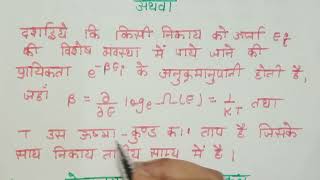 अथवा
दर्शाइये कि किसी निकाय को ऊर्जा Eᵢ
की विशेष अवस्था में पाये जाने की
प्रायिकता e^-βEᵢ के अनुक्रमानुपाती होती है,
जहाँ β = ∂/∂E loge Ω(E) = 1/KT तथा
T उस ऊष्मा-कुण्ड का ताप है जिसके
साथ निकाय तापीय साम्य में है।